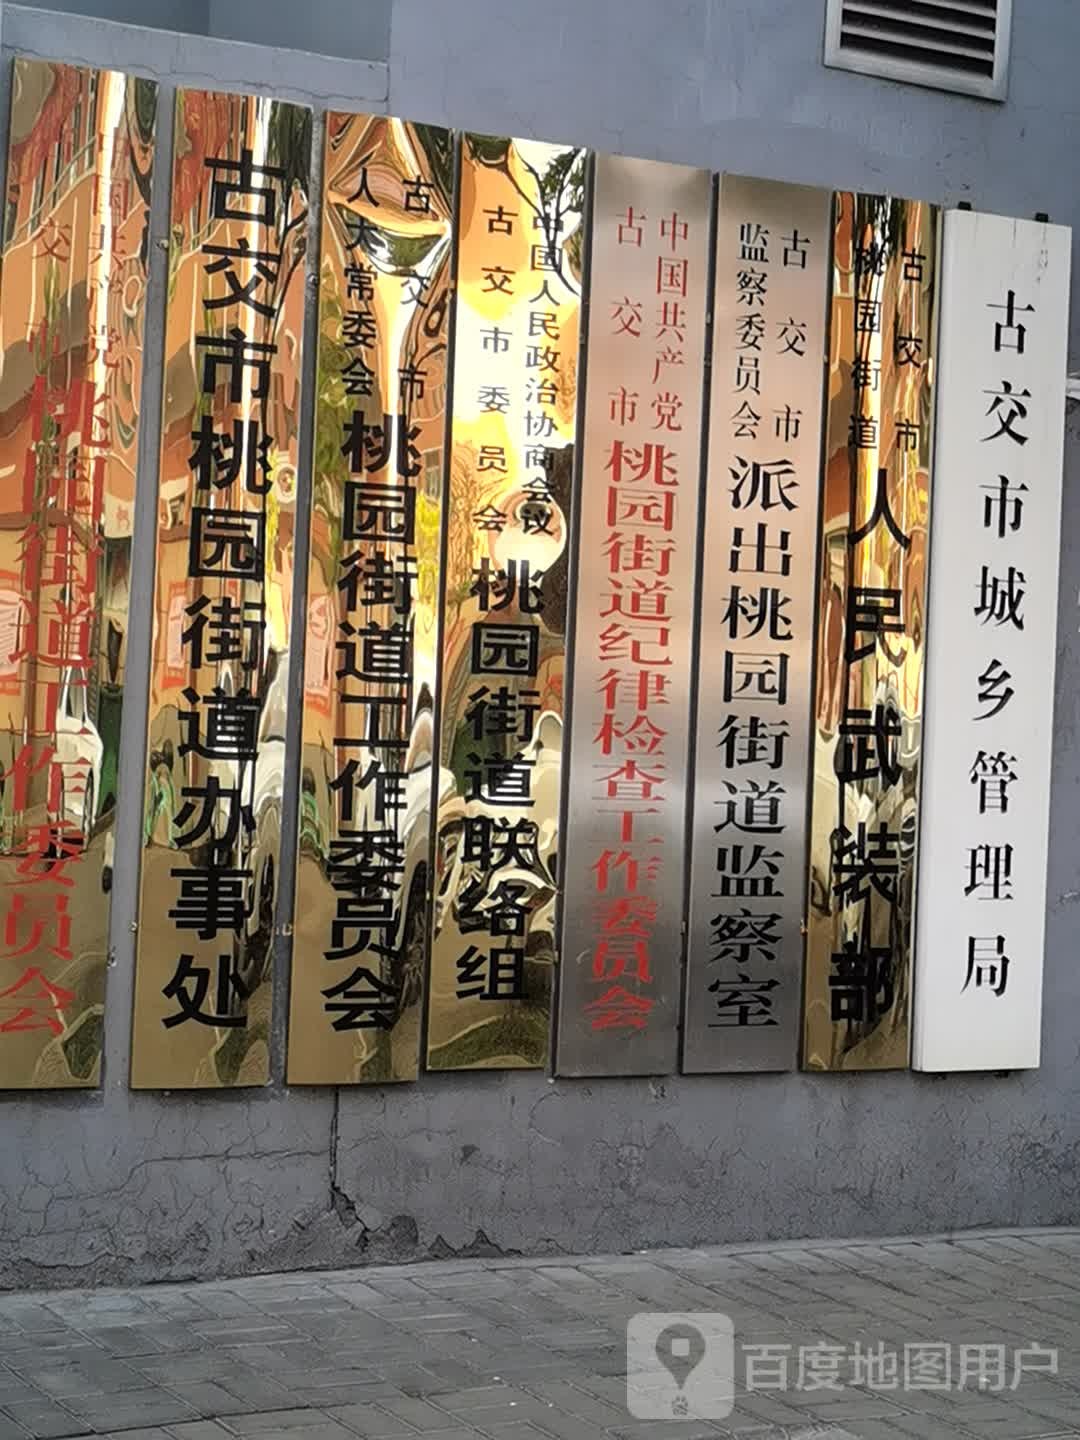 中国共产党
古交市
桃园街道工作委员会
古交市桃园街道办事处
古交市
人大常委会
桃园街道工作委员会
中国人民政治协商会议
古交市委员会
桃园街道联络组
中国共产党
古交市
桃园街道纪律检查工作委员会
古交市
监察委员会
派出桃园街道监察室
古交市
桃园街道
人民武装部
古交市城乡管理局
百度地图用户